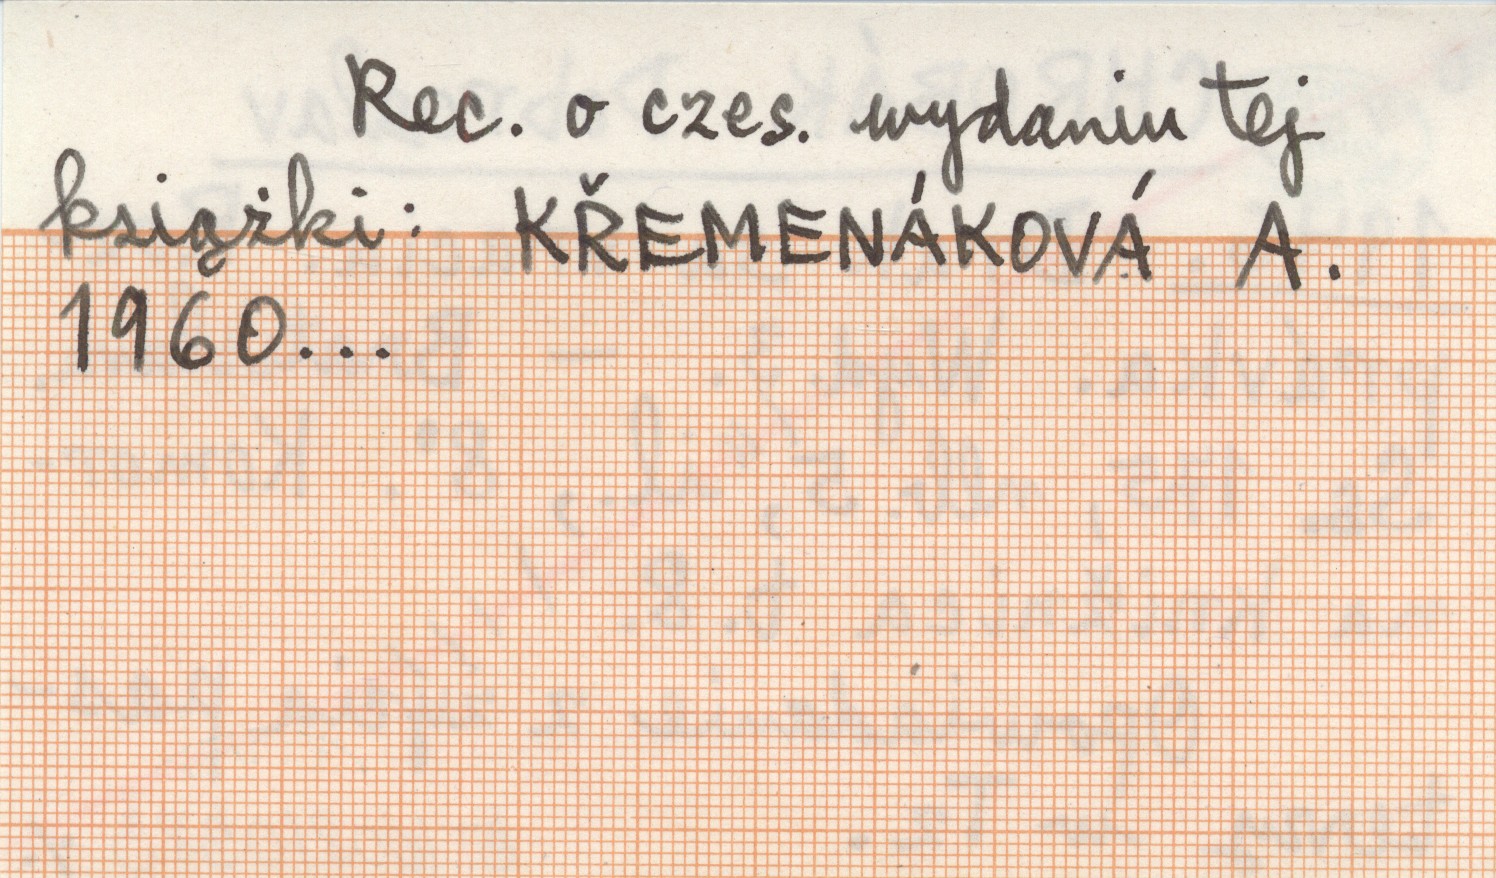 Rec. o czes. wydaniu tej
książki: KŘEMENÁKOVÁ A.
1960...